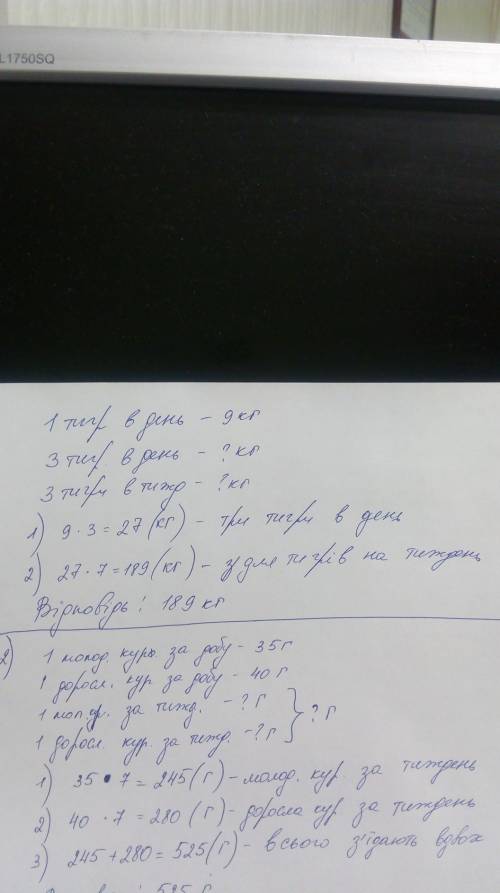 L1750SQ
1 тигр в день – 9 кг
3 тигр. в день – ? кг
3 тигри в тижд – ? кг
1) 9 · 3 = 27 (кг) – три тигри в день
2) 27 · 7 = 189 (кг) – для тигрів на тиждень
Відповідь: 189 кг
2) 1 молод. курк. за добу – 35 г
1 доросл. кур. за добу – 40 г
1 мол. за тижд. – ? г } ? г
1 доросл. кур. за тижд. – ? г
1) 35 · 7 = 245 (г) – молод. кур. за тиждень
2) 40 · 7 = 280 (г) – доросла кур за тиждень
3) 245 + 280 = 525 (г) – всього з'їдають вдвох
525 г